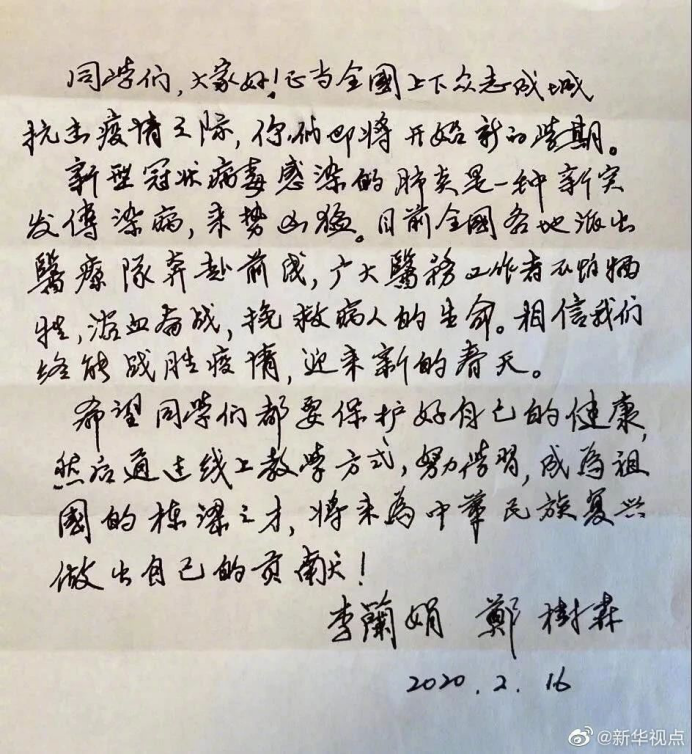 同学们，大家好！正当全國上下众志成城
抗击疫情之际，你们即将开始新的学期。
新型冠状病毒感染的肺炎是一种新突
发傳染病，来势凶猛。目前全國各地派出
醫療隊奔赴前线，广大醫務工作者不怕牺
牲，浴血奋战，挽救病人的生命。相信我们
终能战胜疫情，迎来新的春天。
希望同学们都要保护好自己的健康，
然后通过线上教学方式，努力学習，成為祖
國的栋梁之才，将来為中華民族复兴
做出自己的贡献！
李蘭娟 鄭樹森
2020.2.16
@新华视点